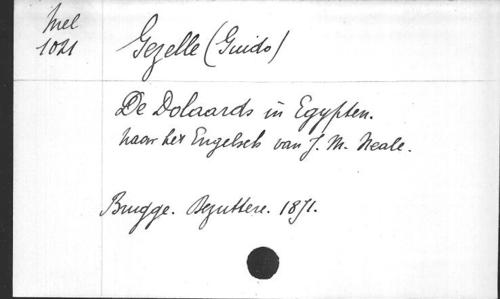 Mel
1021
Gezelle (Guido)
De Dolaards in Egypten.
naar het Engelsch van J. M. Neale.
Brugge. Dezuttere. 1871.